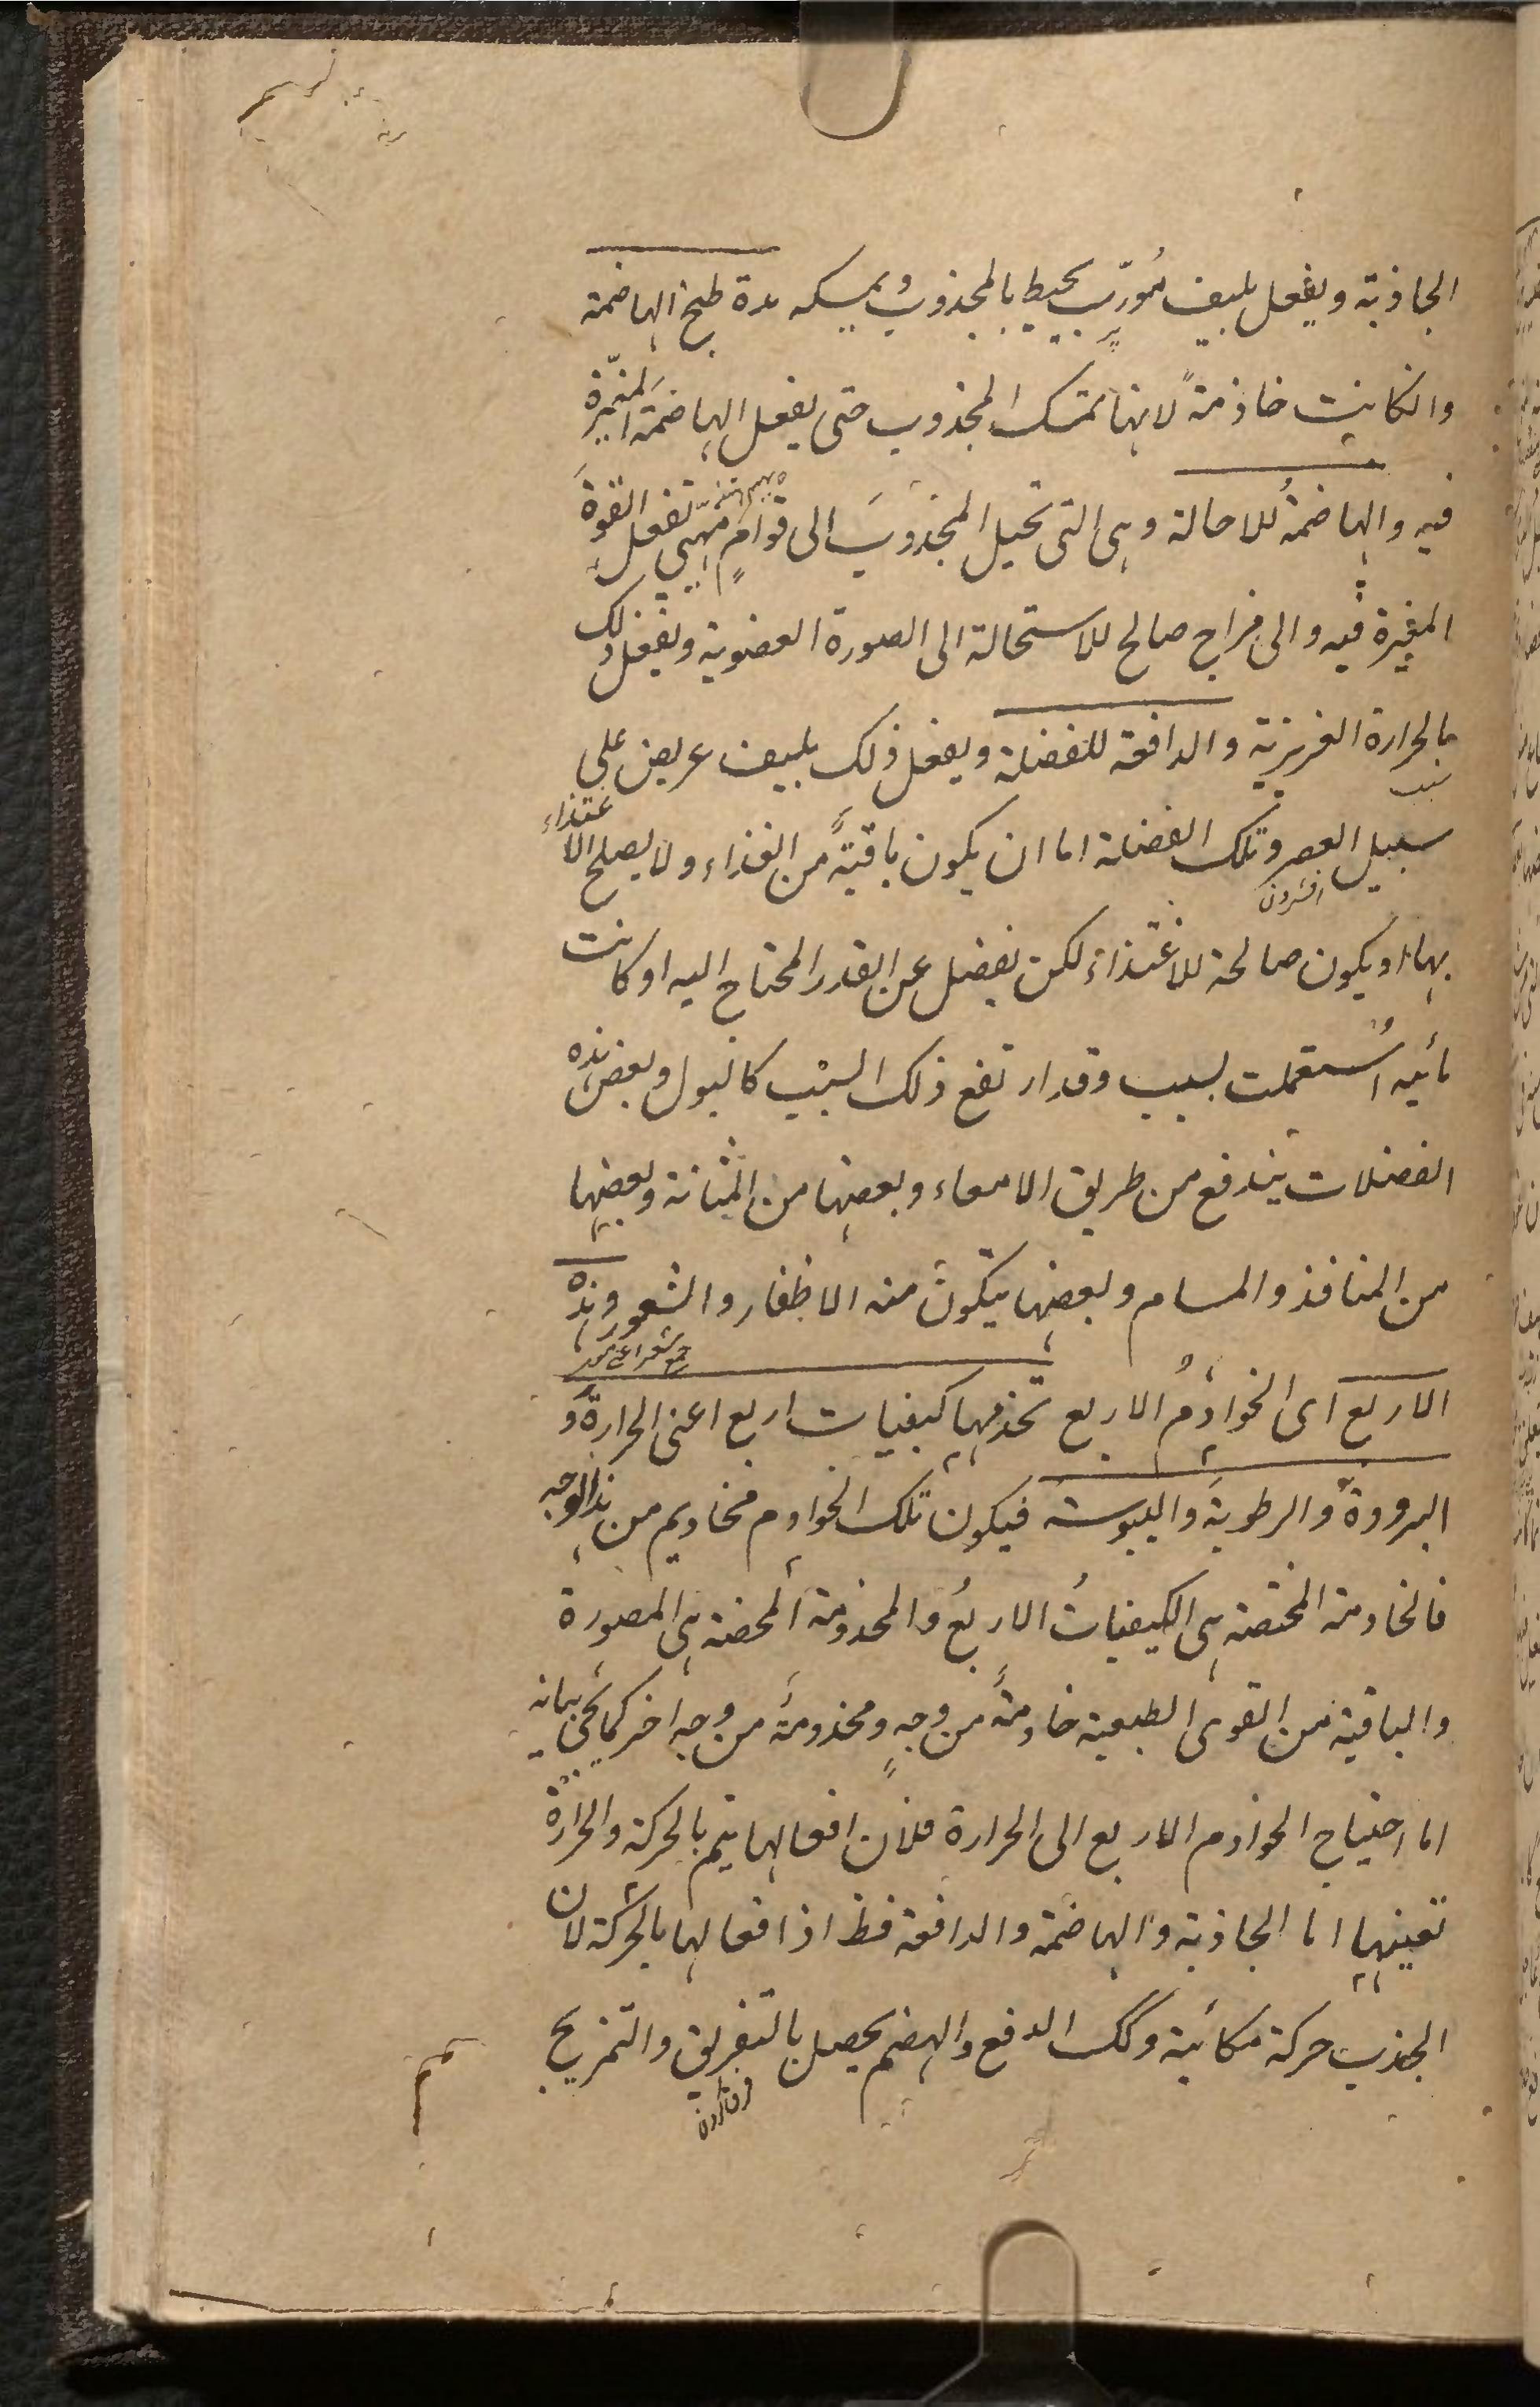 الجاذبة ويفعل بليف مُورّب يحيط بالمجذوب ويمسكه مدة طبخ الهاضمة
وانكانت خادمةً لانها تمسك المجذوب حتى يفعل الهاضمة المغيّرة
فيه والهاضمةُ للاحالة وهى التى تحيل المجذوبَ الى قوامٍ مهيّئ تفعل القوةَ
المغيرة فيه والى مزاج صالح للاستحالة الى الصورة العضوية ويفعل ذلك
بالحرارة الغريزية والدافعة للفضلة ويفعل ذلك بليف عريض على
سبيل العصر وتلك الفضلة اما ان يكون باقيةً من الغذاء ولا يصلح الاغتذاء
افشردن
بها او يكون صالحة للاغتذاء لكن يفضل عن القدر المحتاج اليه او كانت
مائيه اُستعملت لسبب وقد ارتفع ذلك السبب كالبول وبعض هذه
الفضلات يندفع من طريق الامعاء وبعضها من المثانة وبعضها
من المنافذ والمسام وبعضها يتكون منه الاظفار والشعور وهذه
الاربع اى الخوادمُ الاربع تخدمها كيفيات اربع اعنى الحرارةَ و
البرودةَ والرطوبةَ واليبوسة فيكون تلك الخوادم مخاديم من هذا الوجه
فالخادمة المختصة هى الكيفياتُ الاربعُ والمخدومة المحضة هى المصورة
والباقية من القوى الطبعية خادمةً من وجهٍ ومخدومةً من وجه اخر كما يجئ بيانه
اما احتياج الخوادم الاربع الى الحرارة فلان افعالها يتم بالحركة والحرارة
تعينها اما الجاذبة والهاضمة والدافعة فظ اذ افعالها بالحركة لان
الجذب حركة مكانية وكك الدفع والهضم يحصل بالتفريق والتمزيج